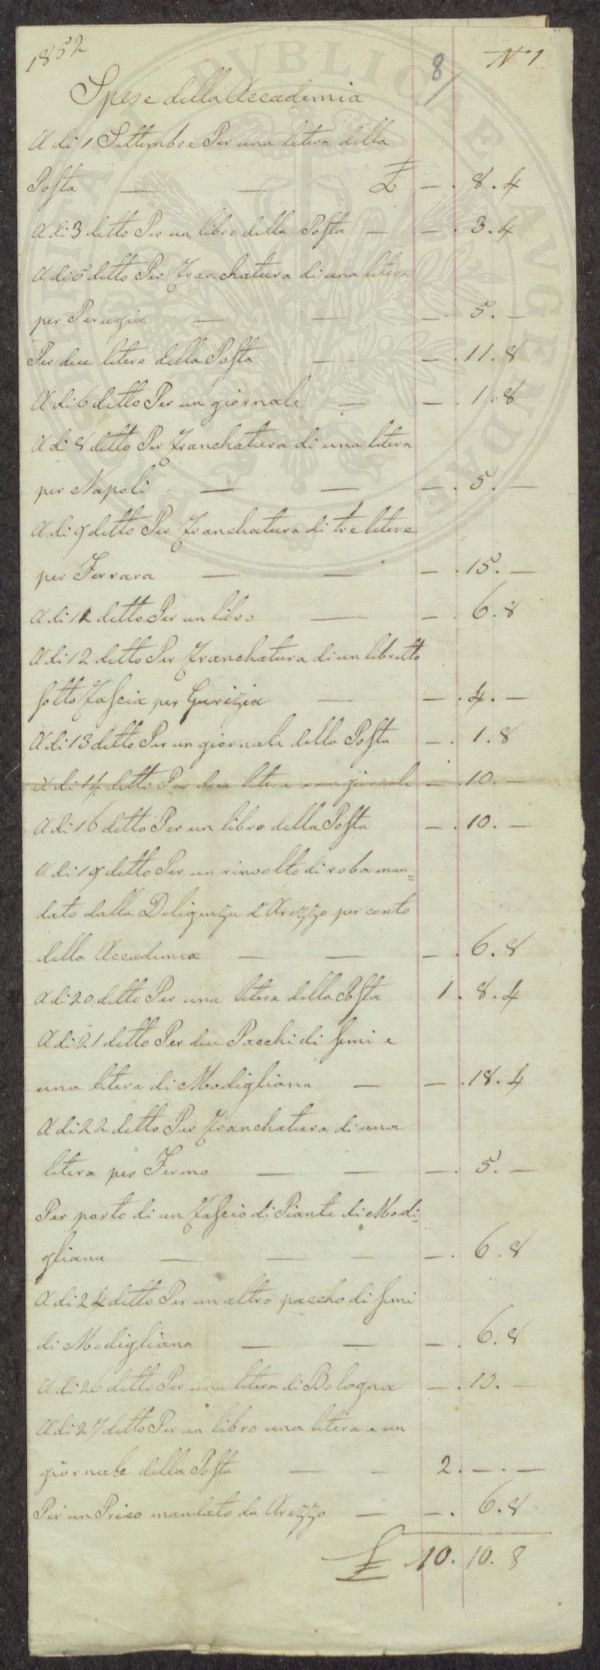 1852
8/ N° 1
Spese della Accademia
A di 1 Settembre Per una letera della
Posta — — £ — . 8 . 4
A di 3 detto Per un libro della Posta — — . 3 . 4
A di 5 detto Per franchatura di una letera
per Perugia — — — . 5 . —
Per due letere della Posta — — . 11 . 8
A di 6 detto Per un giornale — — . 1 . 8
A di 8 detto Per franchatura di una letera
per Napoli — — — . 5 . —
A di 9 detto Per franchatura di tre letere
per Ferrara — — — . 15 . —
A di 12 detto Per un libro — — . 6 . 8
A di 12 detto Per franchatura di un libretto
sotto fascia per Gurizia — — . 4 . —
A di 13 detto Per un giornale della Posta — . 1 . 8
A di 14 detto Per due letere e un giornale — . 10 . —
A di 16 detto Per un libro della Posta — . 10 . —
A di 19 detto Per un rinvolto di roba man=
dato dalla Deligenza d'Arezzo per conto
della Accademia — — — . 6 . 8
A di 20 detto Per una letera della Posta 1 . 8 . 4
A di 21 detto Per due Pacchi di semi e
una letera di Modigliana — — . 18 . 4
A di 22 detto Per franchatura di una
letera per Fermo — — — . 5 . —
Per porto di un fascio di Piante di Modi=
gliana — — — — . 6 . 8
A di 24 detto Per un altro paccho di semi
di Modigliana — — — . 6 . 8
A di 26 detto Per una letera di Bologna — . 10 . —
A di 27 detto Per un libro una letera e un
giornale della Posta — — 2 . — . —
Per un mandato da Arezzo — — . 6 . 8
£ 10 . 10 . 8
PUBLICAE AUGENDAE